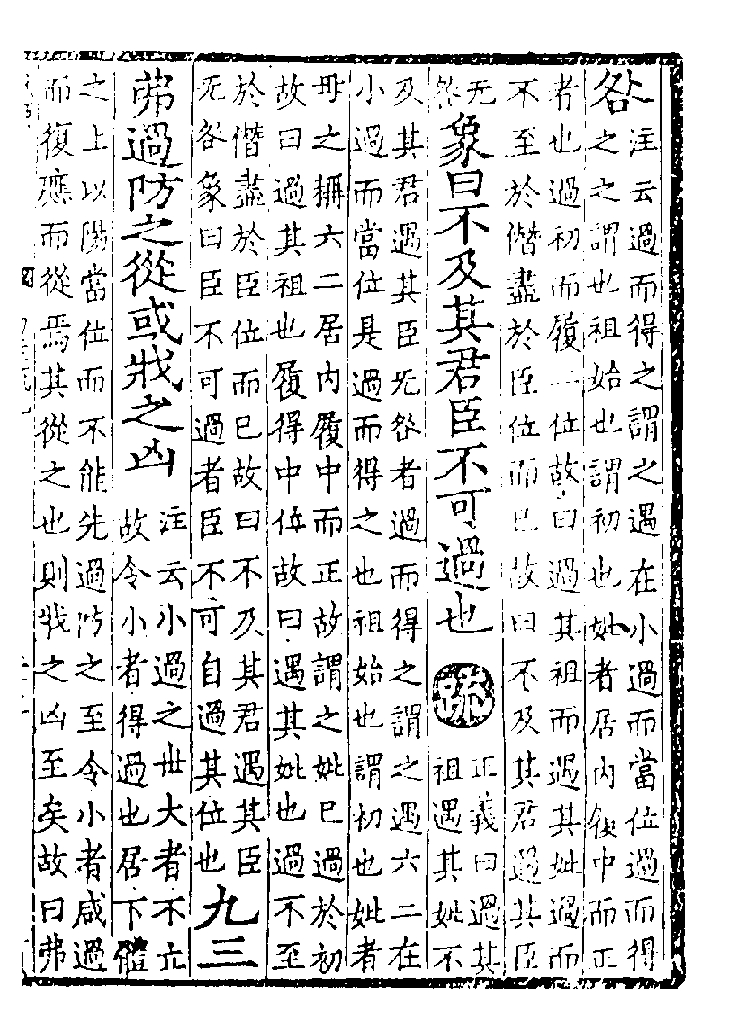 咎
注云過而得之謂之遇在小過而當位過而得
之之謂也祖始也謂初也妣者居内履中而正
者也過初而履二位故曰過其祖而遇其妣過而
不至於僭盡於臣位而已故曰不及其君遇其臣
无
咎
象曰不及其君臣不可過也
疏
正義曰過其
祖遇其妣不
及其君遇其臣无咎者過而得之謂之遇六二在
小過而當位是過而得之也祖始也謂初也妣者
母之稱六二居内履中而正故謂之妣已過於初
故曰過其祖也履得中位故曰遇其妣也過不至
於僭盡於臣位而已故曰不及其君遇其臣
无咎象曰臣不可過者臣不可自過其位也
九三
弗過防之從或戕之凶
注云小過之世大者不立
故令小者得過也居下體
之上以陽當位而不能先過防之至令小者咸過
而復應而從焉其從之也則戕之凶至矣故曰弗